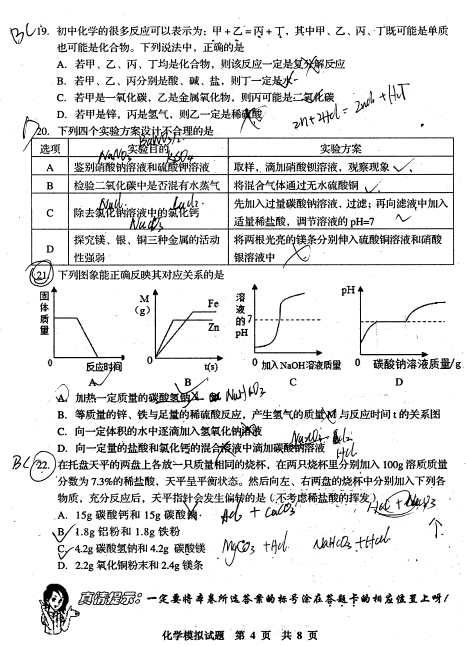 BC 19. 初中化学的很多反应可以表示为：甲＋乙＝丙＋丁，其中甲、乙、丙、丁既可能是单质
也可能是化合物。下列说法中，正确的是
A. 若甲、乙、丙、丁均是化合物，则该反应一定是复分解反应
B. 若甲、乙、丙分别是酸、碱、盐，则丁一定是水
C. 若甲是一氧化碳，乙是金属氧化物，则丙可能是二氧化碳
D. 若甲是锌，丙是氢气，则乙一定是稀硫酸
20. 下列四个实验方案设计不合理的是
选项 实验目的 实验方案
A 鉴别硝酸钠溶液和硫酸钾溶液 取样，滴加硝酸钡溶液，观察现象
B 检验二氧化碳中是否混有水蒸气 将混合气体通过无水硫酸铜
C 除去氯化钠溶液中的氯化钙 先加入过量碳酸钠溶液，过滤；再向滤液中加入
适量稀盐酸，调节溶液的 pH=7
D 探究镁、银、铜三种金属的活动
性强弱 将两根光亮的镁条分别伸入硫酸铜溶液和硝酸
银溶液中
21. 下列图象能正确反映其对应关系的是
固体质量 0 反应时间 A
M (g) Fe Zn 0 t(s) B
溶液的 pH 7 0 加入 NaOH 溶液质量 C
pH 0 碳酸钠溶液质量/g D
A. 加热一定质量的碳酸氢钠
B. 等质量的锌、铁与足量的稀硫酸反应，产生氢气的质量 M 与反应时间 t 的关系图
C. 向一定体积的水中逐滴加入氢氧化钠溶液
D. 向一定量的盐酸和氯化钙的混合溶液中滴加碳酸钠溶液
BC 22. 在托盘天平的两盘上各放一只质量相同的烧杯，在两只烧杯里分别加入 100g 溶质质量
分数为 7.3%的稀盐酸，天平呈平衡状态。然后向左、右两盘的烧杯中分别加入下列各
物质，充分反应后，天平指针会发生偏转的是（不考虑稀盐酸的挥发）
A. 15g 碳酸钙和 15g 碳酸钠
B. 1.8g 铝粉和 1.8g 铁粉
C. 4.2g 碳酸氢钠和 4.2g 碳酸镁 MgCO3 + HCl NaHCO3 + HCl
D. 2.2g 氧化铜粉末和 2.4g 镁条
真情提示：一定要将本卷所选答案的标号涂在答题卡的相应位置上呀！
化学模拟试题 第 4 页 共 8 页